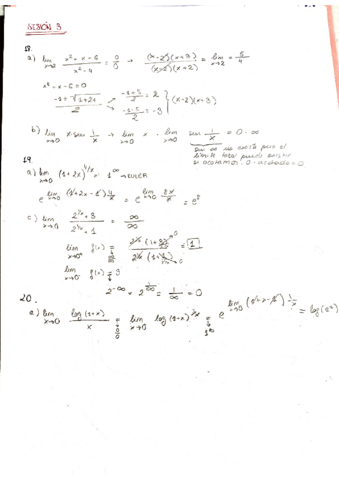 SESIÓN 3
18.
a) lim x→2 x² + x - 6 / x² - 4 = 0/0 → (x-2)(x+3) / (x-2)(x+2) = lim x→2 = 5/4
x² + x - 6 = 0
-1 ± √1+24 / 2 → -1+5 / 2 = 2
→ -1-5 / 2 = -3 } (x-2)(x+3)
b) lim x→0 x · sen 1/x → lim x→0 x · lim x→0 sen 1/x = 0 · ∞
sen ∞ no existe pero el
límite total puede existir
si acotamos. 0 · acotado = 0
19.
a) lim x→0 (1+2x)^4/x = 1^∞ → EULER
e^lim x→0 (1+2x-1) 4/x = e^lim x→0 8x/x = e^8
c) lim x→0 2^1/x + 3 / 2^1/x + 1 = ∞/∞
lim x→0⁺ f(x) = = 1
lim x→0⁻ f(x) = 3
2^-∞ = 2 = 1/∞ = 0
20.
a) lim x→0 log(1+x) / x = 0/0 lim x→0 log(1+x)^1/x = 1^∞ e^lim x→0 (1+x-1) 1/x = log(e^x)